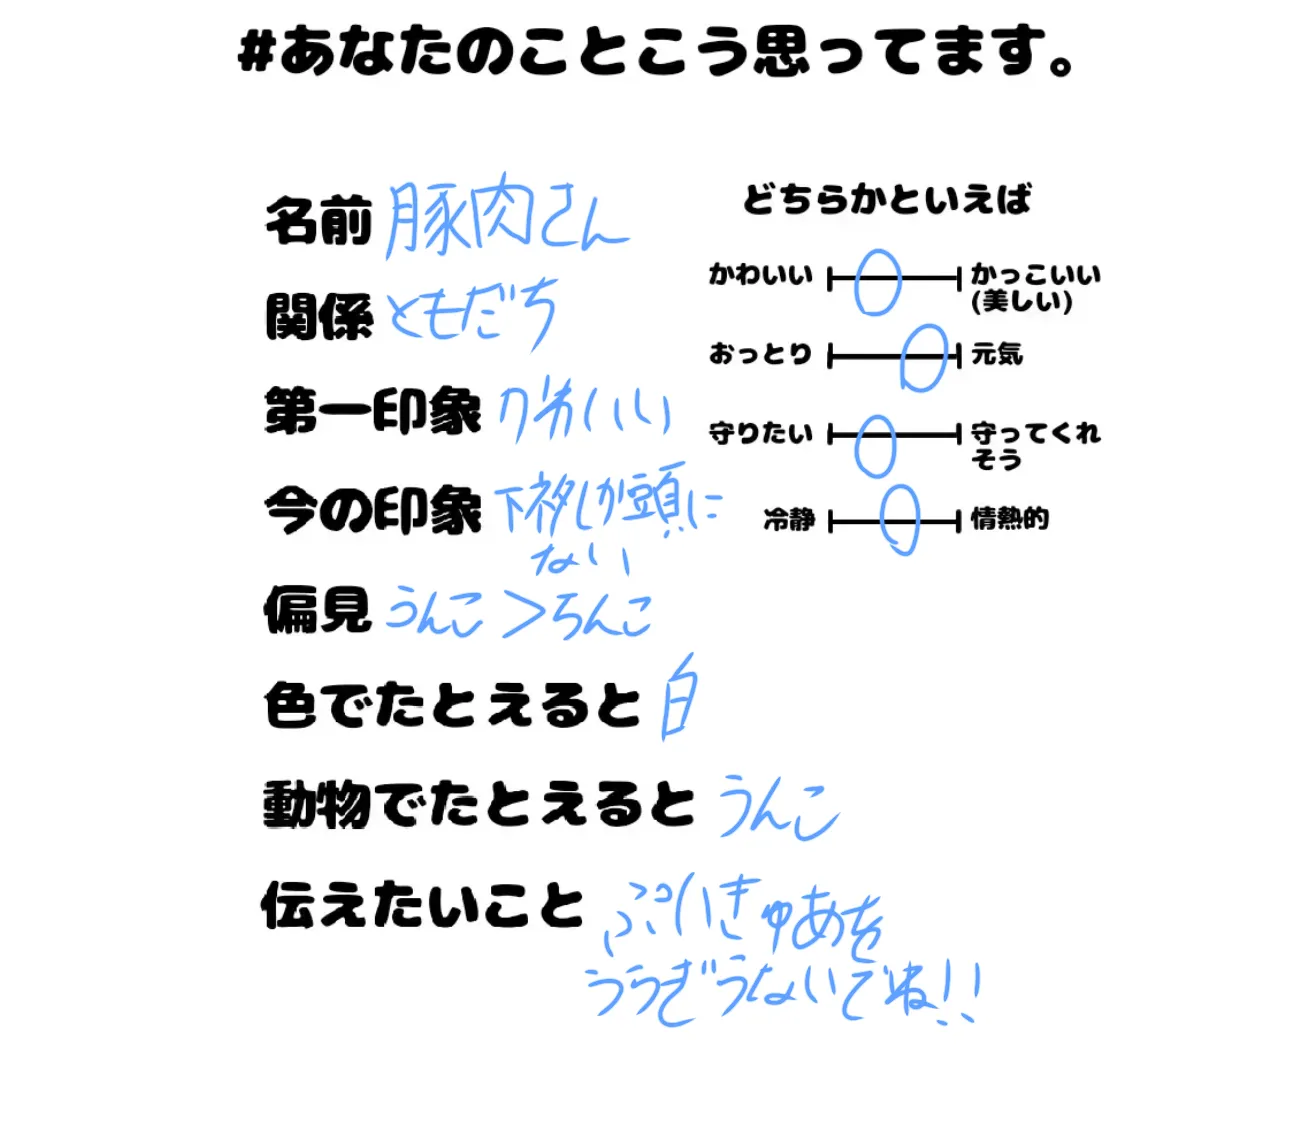 #あなたのことこう思ってます。
名前 豚肉さん
関係 ともだち
第一印象 かわいい
今の印象 下ネタしか頭に
ない
偏見 うんこ>ちんこ
色でたとえると 白
動物でたとえると うんこ
伝えたいこと ぷいきゅあを
うらぎうないでね!!
どちらかといえば
かわいい かっこいい
(美しい)
おっとり 元気
守りたい 守ってくれ
そう
冷静 情熱的